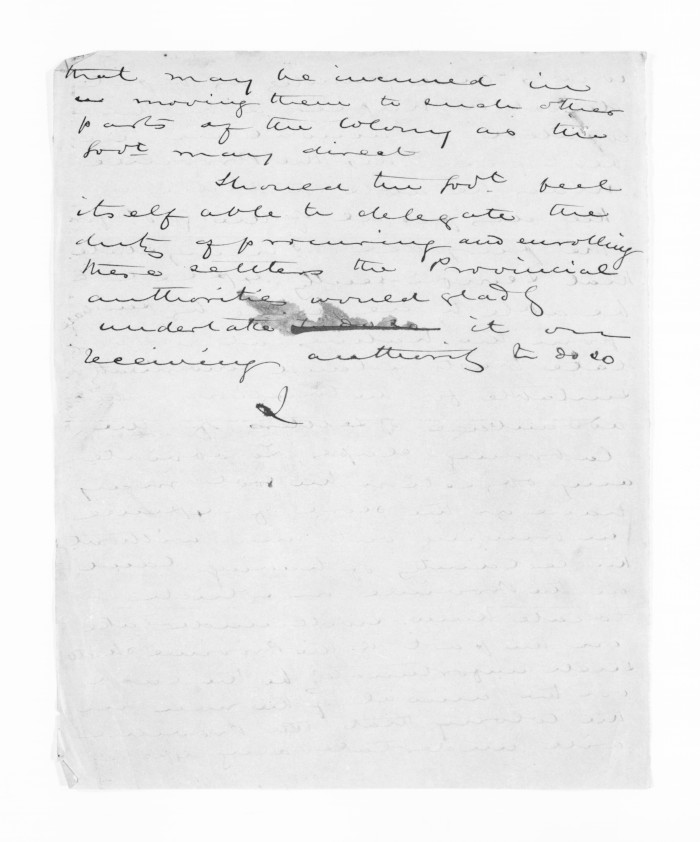 that may be incurred in
removing them to such other
parts of the Colony as the
Govt. may direct
Should the Govt. feel
itself able to delegate the
duty of procuring and enrolling
these settlers the Provincial
authorities would gladly
undertake it on
receiving authority to do so
I